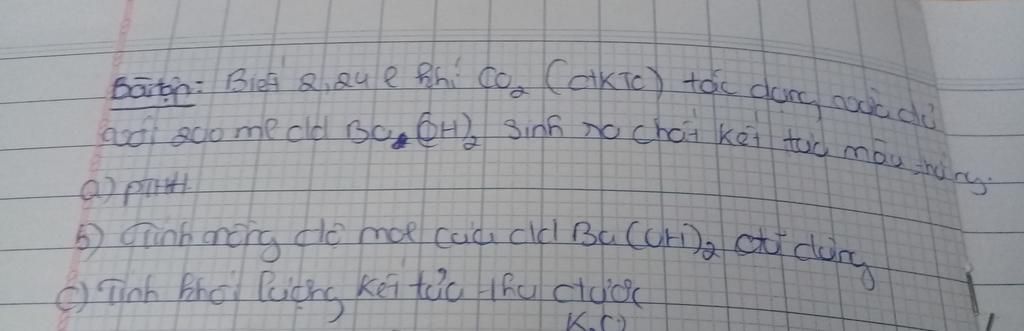 Bài tập: Biết 2,24 l khí CO2 (đKTC) tác dụng vừa đủ
với 200 ml dd Ba(OH)2 sinh ra chất kết tủa màu trắng.
a) PTHH
b) Tính nồng độ mol của dd Ba(OH)2 đã dùng
c) Tính khối lượng kết tủa thu được